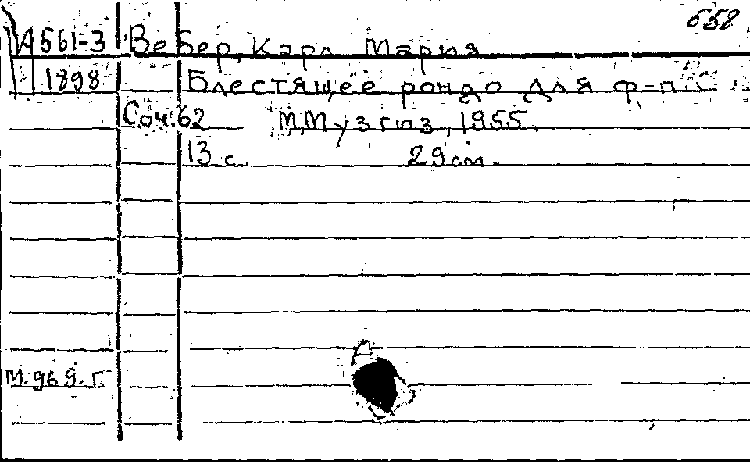 658
А561-3 Вебер, Карл Мария
1898 Блестящее рондо для ф-п.
Соч. 62 М., Музгиз, 1955.
13 с. 29 см.
М. 969. г.